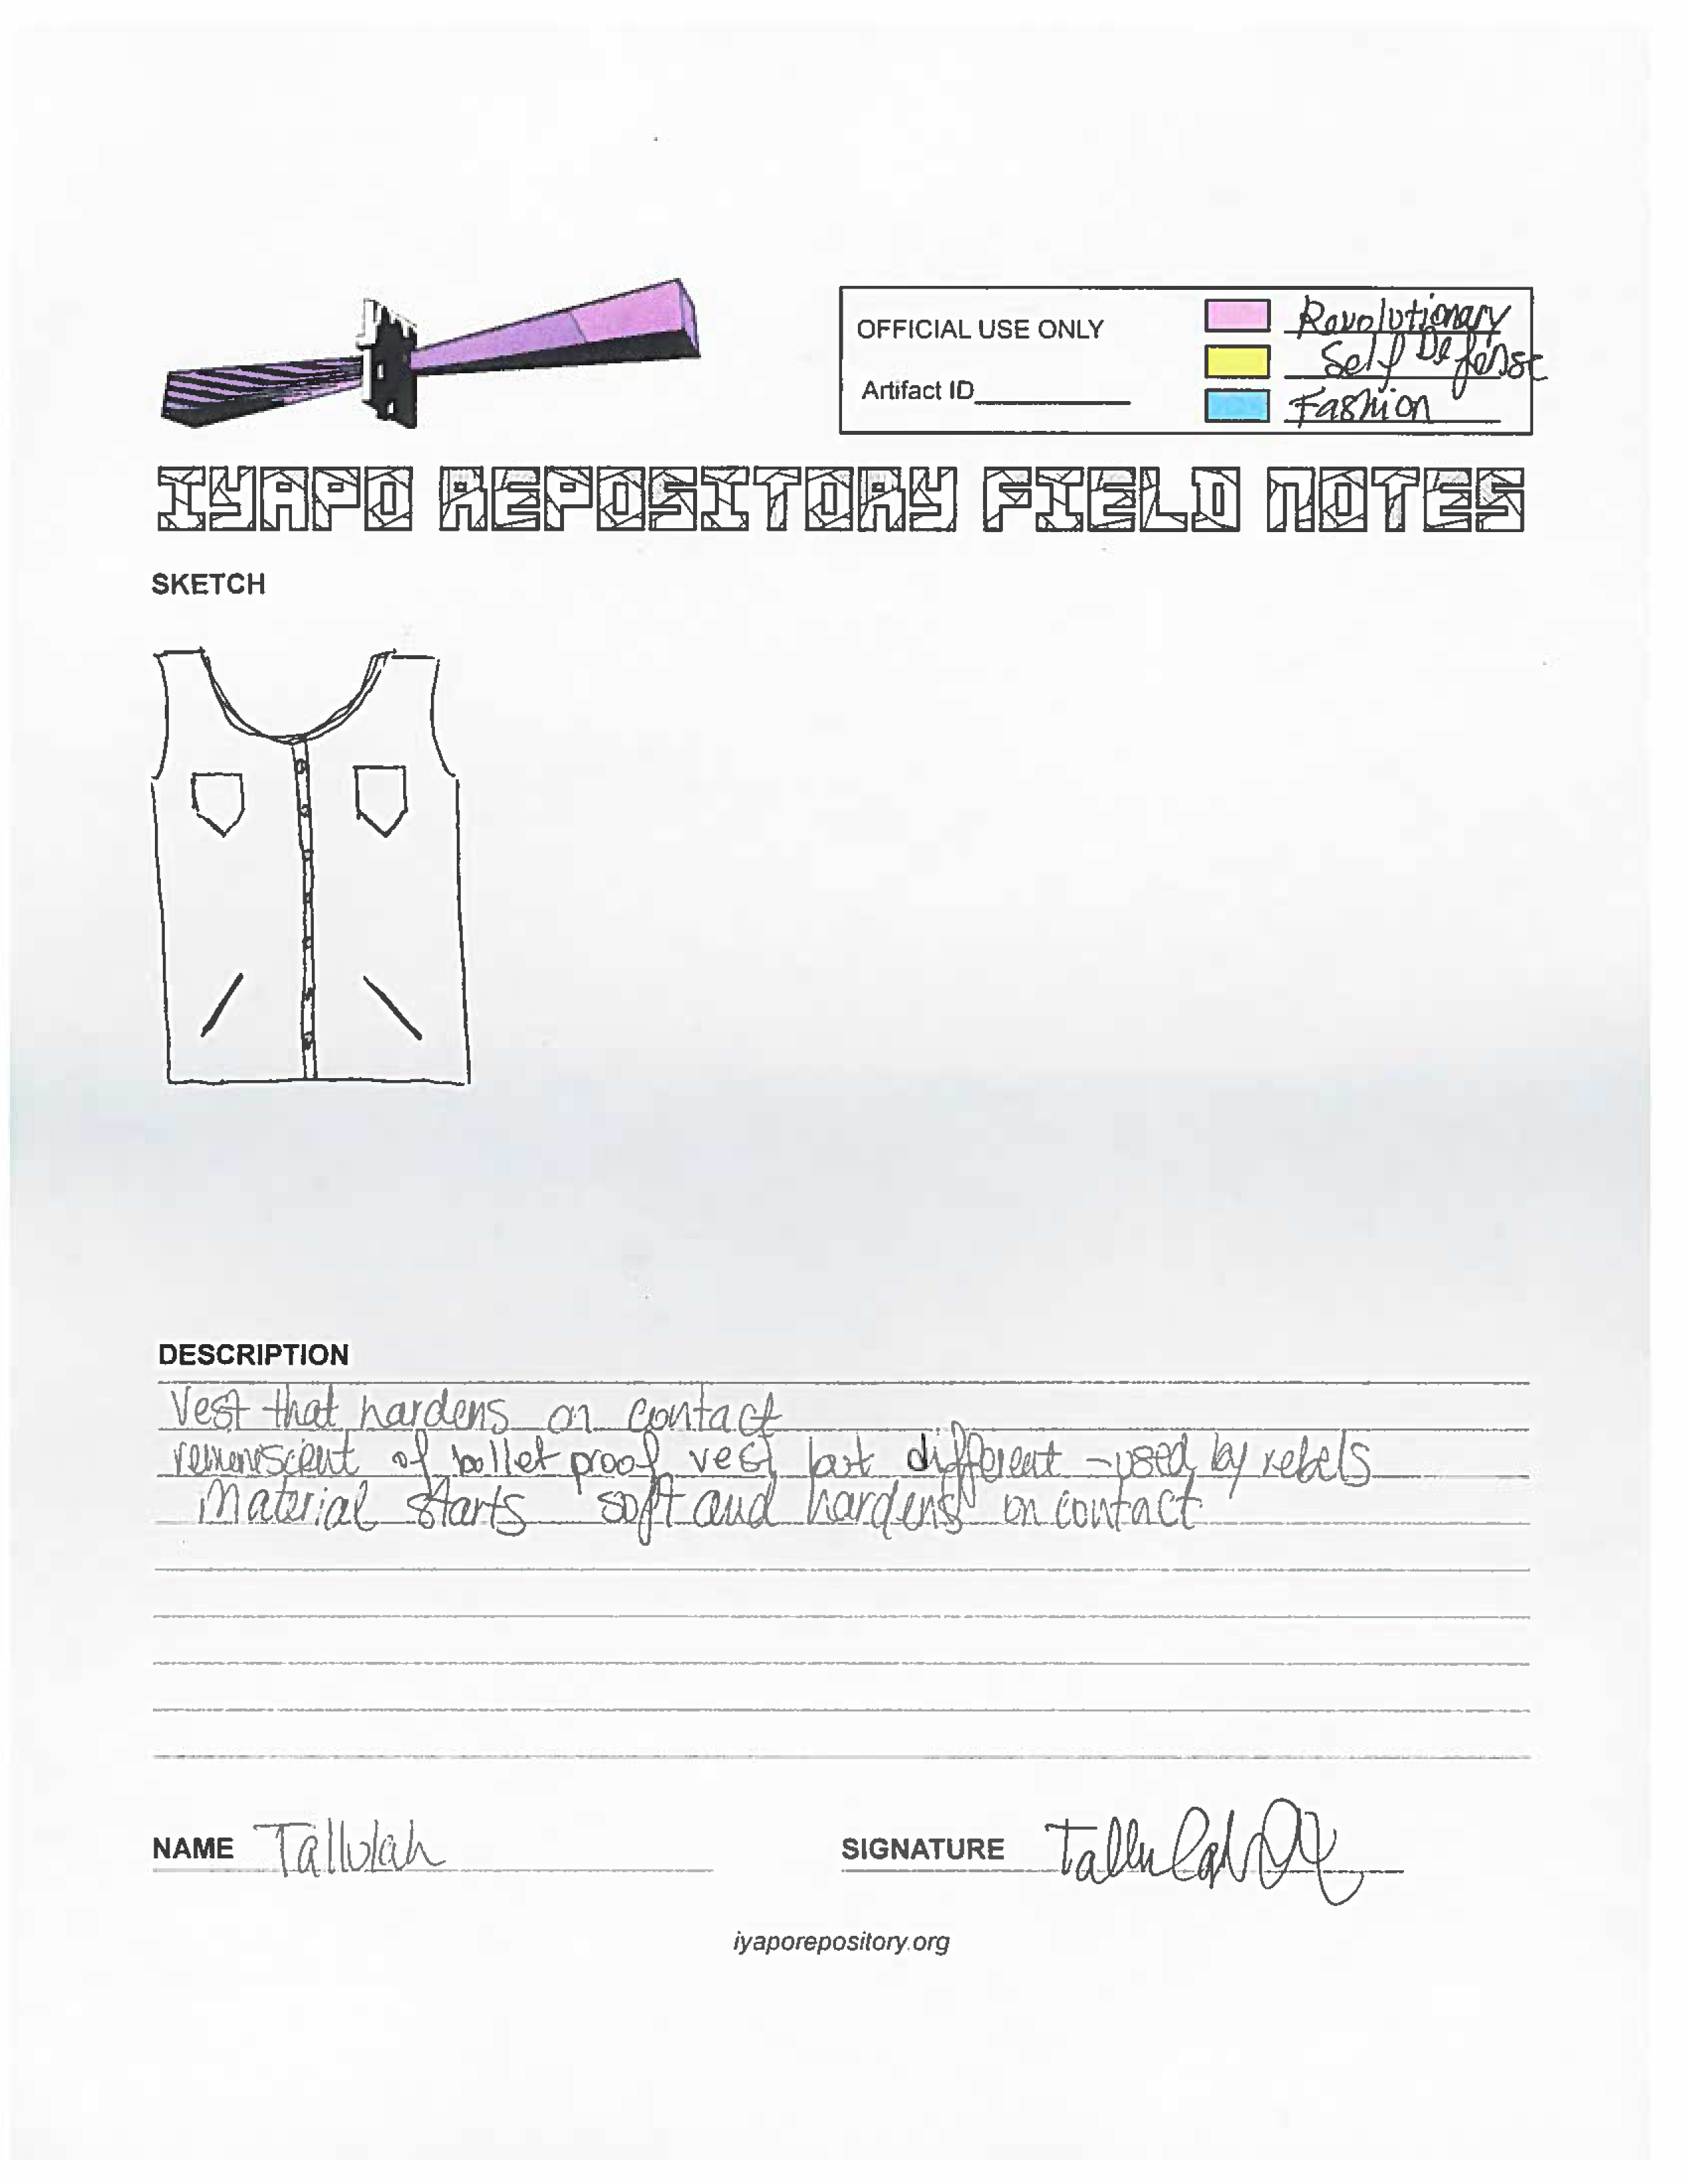 OFFICIAL USE ONLY
Revolutionary
Self Defense
Artifact ID
Fashion
IYAPO REPOSITORY FIELD NOTES
SKETCH
DESCRIPTION
Vest that hardens on contact
remeniscient of bullet proof vest but different - used by rebels
Material starts soft and hardens on contact
NAME Tallulah
SIGNATURE Tallulah
iyaporepository.org